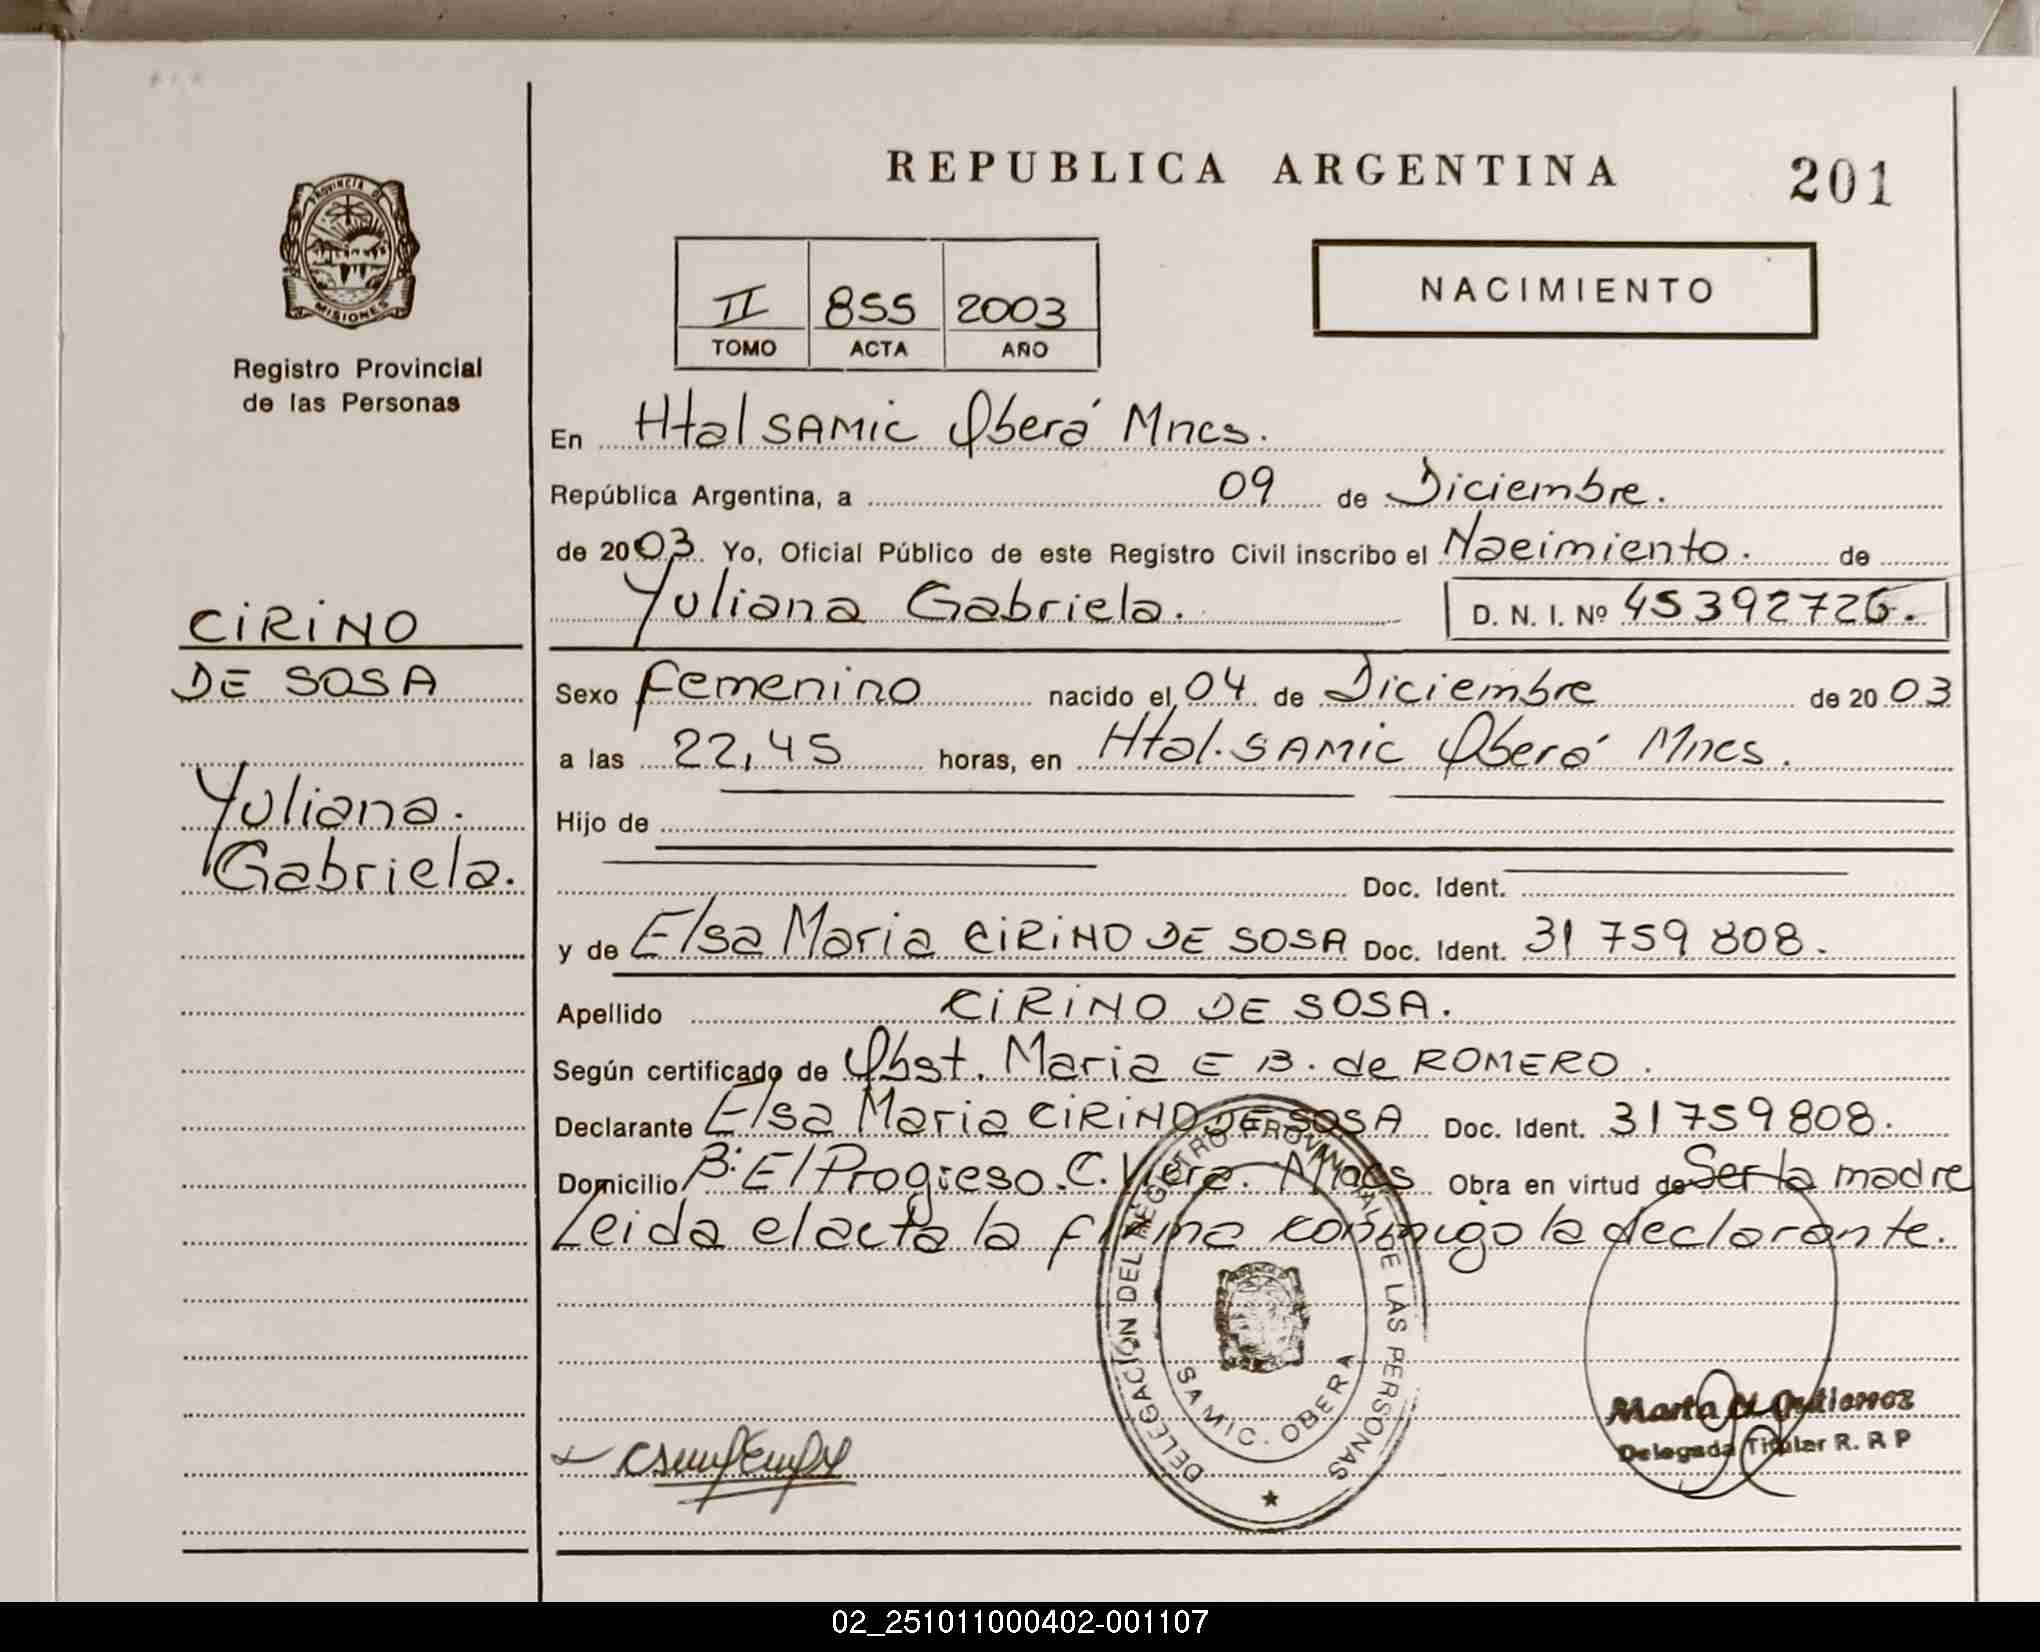 REPUBLICA ARGENTINA
201
PROVINCIA DE
MISIONES
Registro Provincial
de las Personas
II 855 2003
TOMO ACTA AÑO
NACIMIENTO
En Htal SAMIC Oberá Mnes.
República Argentina, a 09 de Diciembre.
de 2003. Yo, Oficial Público de este Registro Civil inscribo el Nacimiento. de
Yuliana Gabriela. D. N. I. Nº 45392726.
CIRINO
DE SOSA
Yuliana.
Gabriela.
Sexo femenino nacido el 04 de Diciembre de 2003
a las 22,45 horas, en Htal. SAMIC Oberá Mnes.
Hijo de
Doc. Ident.
y de Elsa Maria CIRINO DE SOSA Doc. Ident. 31 759 808.
Apellido CIRINO DE SOSA.
Según certificado de Obst. Maria E B. de ROMERO.
Declarante Elsa Maria CIRINO DE SOSA Doc. Ident. 31759808.
Domicilio B: El Progreso. C. Viera. Mnes Obra en virtud de Ser la madre
Leida el acta la firma conmigo la declarante.
DELEGACIÓN DEL REGISTRO PROVINCIAL DE LAS PERSONAS
SAMIC. OBERA
Marta Gutierrez
Delegada Titular R. R P
02_251011000402-001107